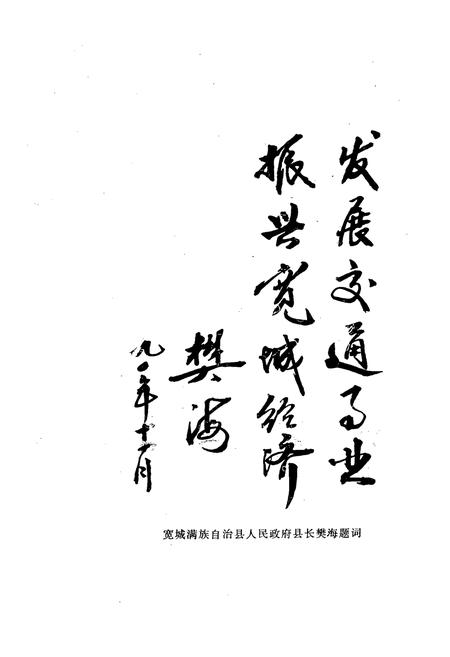 发展交通事业
振兴宽城经济
樊海
九一年十一月
宽城满族自治县人民政府县长樊海题词